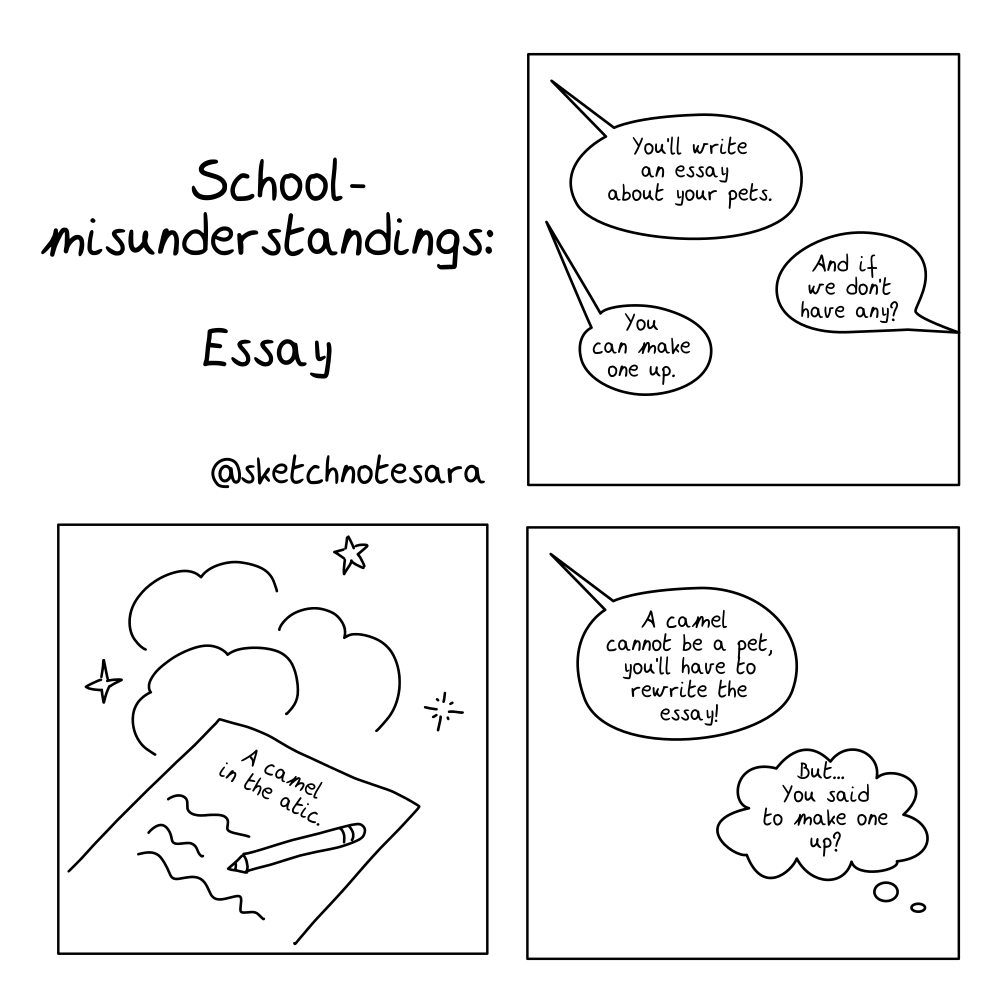 School-
misunderstandings:
Essay
@sketchnotesara
You'll write
an essay
about your pets.
And if
we don't
have any?
You
can make
one up.
A camel
in the atic.
A camel
cannot be a pet,
you'll have to
rewrite the
essay!
But...
You said
to make one
up?